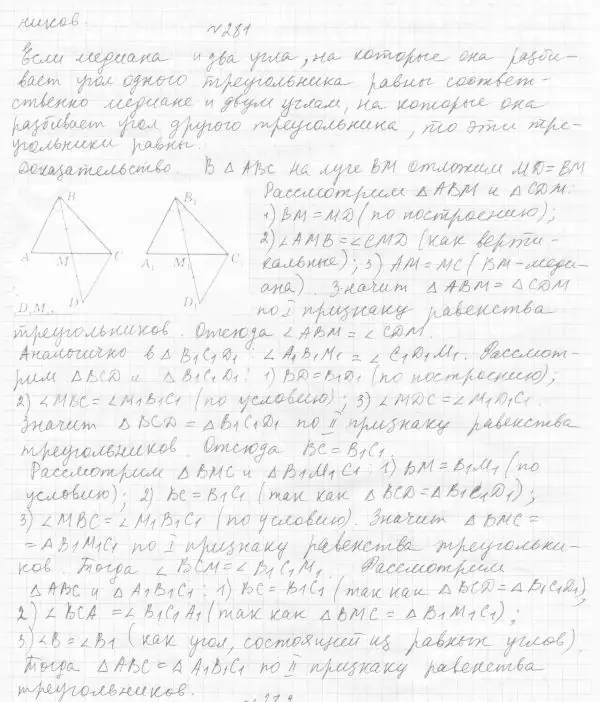 ников.
№281
Если медиана и два угла, на которые она разби-
вает угол одного треугольника равны соответ-
ственно медиане и двум углам, на которые она
разбивает угол другого треугольника, то эти тре-
угольники равны.
Доказательство. В △ABC на луче BM отложим MD=BM
B B₁
A M C A₁ M₁ C₁
D D₁
D, M
Рассмотрим △ABM и △CDM:
1) BM=MD (по построению);
2) ∠AMB=∠CMD (как верти-
кальные); 3) AM=MC (BM-меди-
ана). Значит △ABM=△CDM
по I признаку равенства
треугольников. Отсюда ∠ABM=∠CDM
Аналогично в △B₁C₁D₁: ∠A₁B₁M₁=∠C₁D₁M₁. Рассмот-
рим △BCD и △B₁C₁D₁: 1) BD=B₁D₁ (по построению);
2) ∠MBC=∠M₁B₁C₁ (по условию); 3) ∠MDC=∠M₁D₁C₁.
Значит △BCD=△B₁C₁D₁ по II признаку равенства
треугольников. Отсюда BC=B₁C₁.
Рассмотрим △BMC и △B₁M₁C₁: 1) BM=B₁M₁ (по
условию); 2) BC=B₁C₁ (так как △BCD=△B₁C₁D₁);
3) ∠MBC=∠M₁B₁C₁ (по условию). Значит △BMC=
=△B₁M₁C₁ по I признаку равенства треугольни-
ков. Тогда ∠BCM=∠B₁C₁M₁. Рассмотрим
△ABC и △A₁B₁C₁: 1) BC=B₁C₁ (так как △BCD=△B₁C₁D₁)
2) ∠BCA=∠B₁C₁A₁ (так как △BMC=△B₁M₁C₁);
3) ∠B=∠B₁ (как угол, состоящей из равных углов).
Тогда △ABC=△A₁B₁C₁ по II признаку равенства
треугольников.